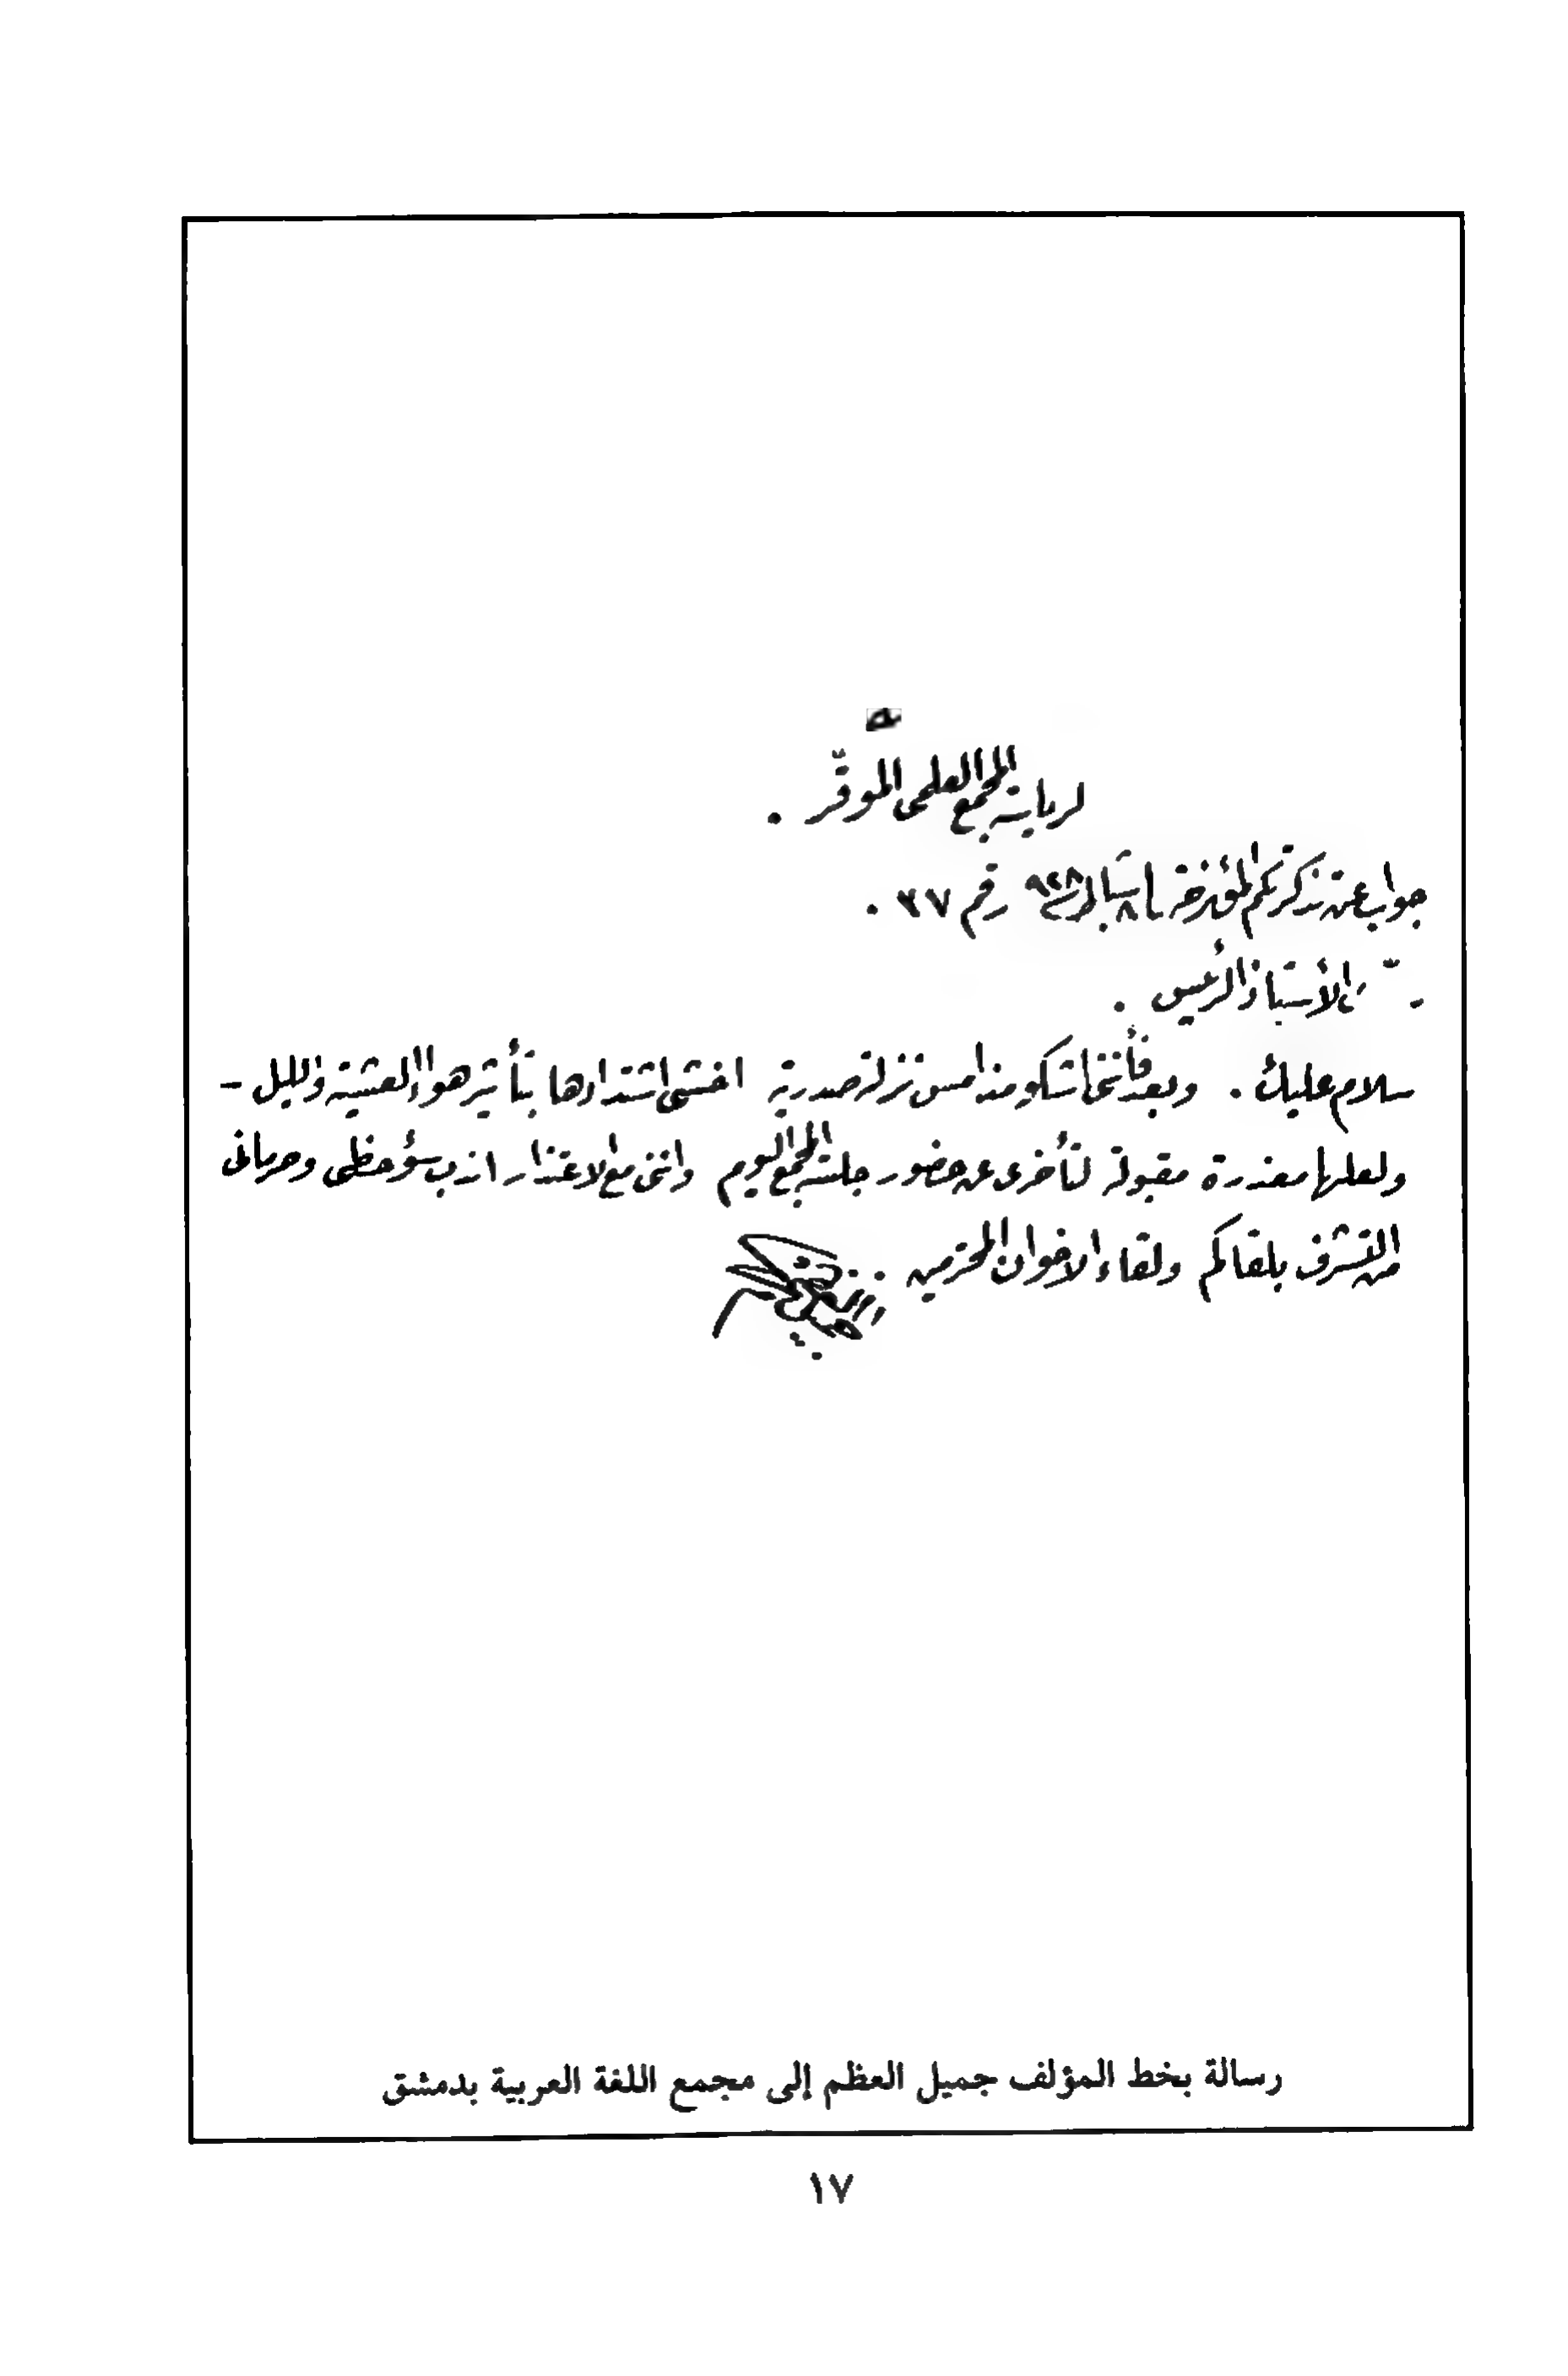 لرياسة المجمع العلمي الموقّر .
جواب عن تذكرتكم المؤرخة شباط ٩٢٨ رقم ٣٧ .
الأستاذ الرئيس .
سلام عليك . وبعد فأنني اشكو منذ امس نزلة صدرية اخشى اشتدادها بتأثير هواء العشية والليل -
ولعلها معذرة مقبولة لتأخرى عن حضور جلسة المجمع اليوم وانني مع الاعتذار اندب سؤ حظى وحرمانى
من التشرف بلقاكم ولقاء الاخوان المحترمين
رسالة بخط المؤلف جميل العظم إلى مجمع اللغة العربية بدمشق
١٧